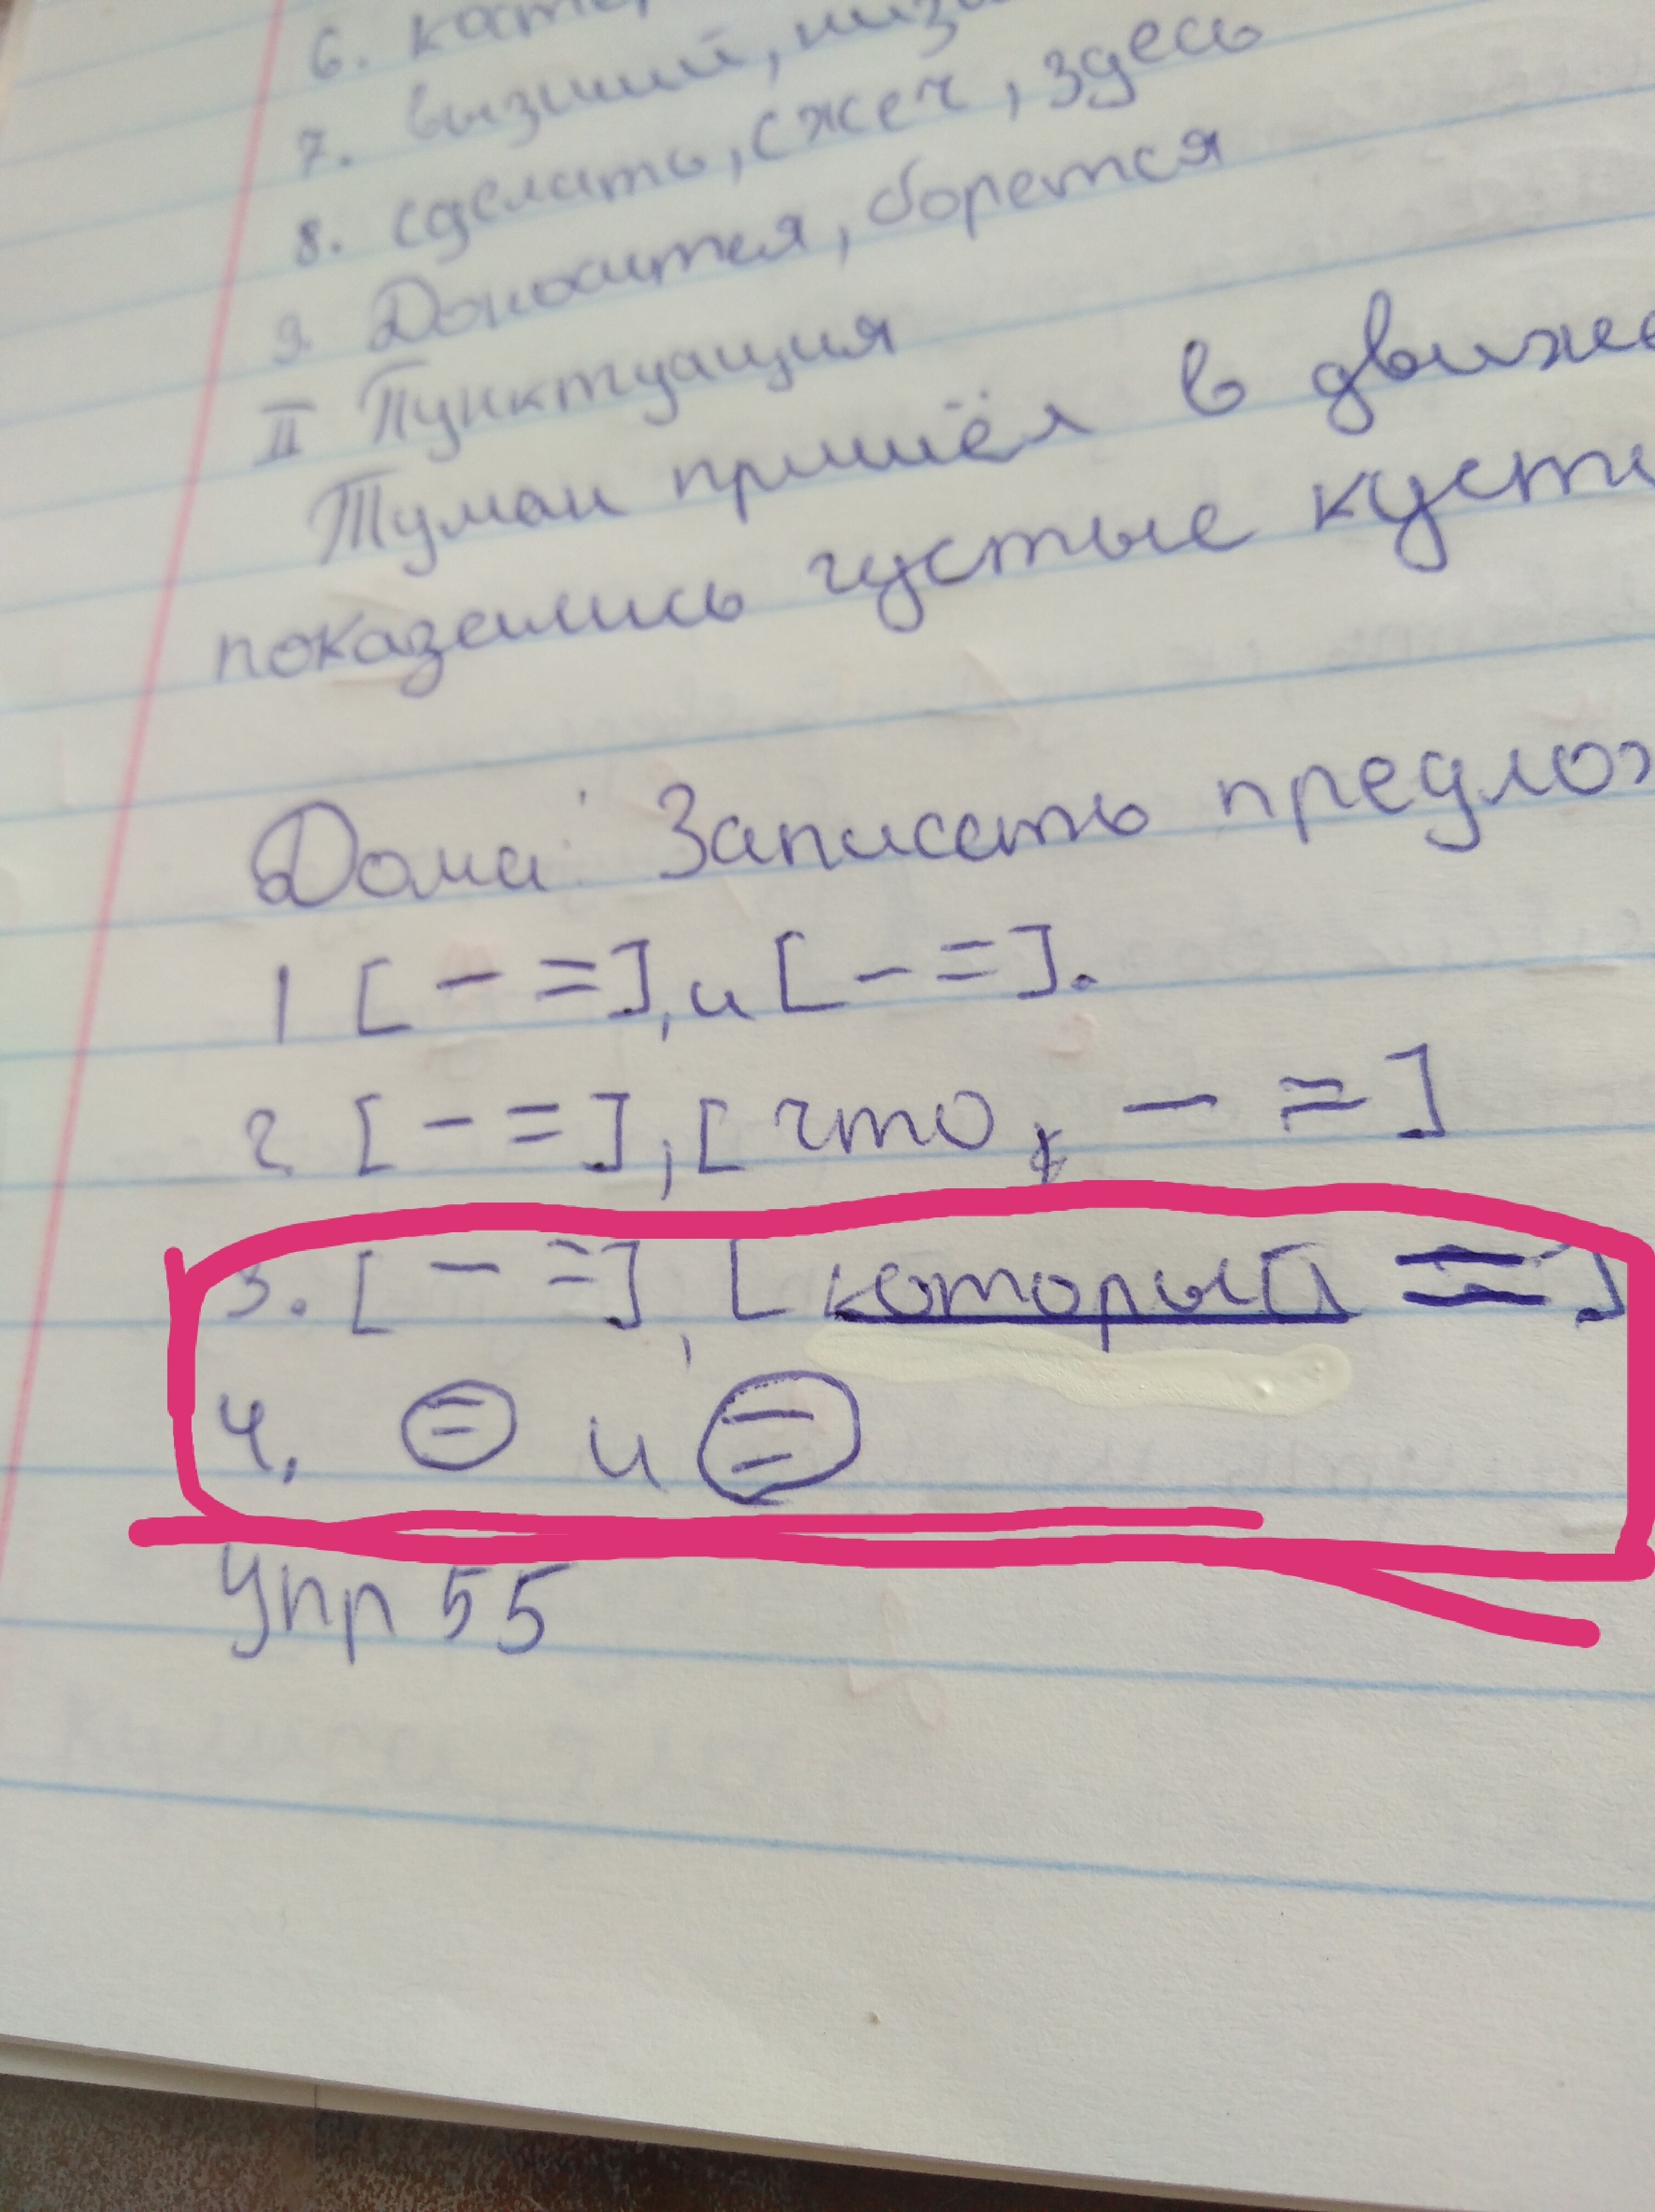 6.
7. высший,
8. сделать, сжеч, здесь
9. Доносится, борется
II Пунктуация
Туман пришёл в
показались густые
Дома: Записать
1 [ – =], и [ – =].
2. [ – =], [ что, – =]
3. [ – =], [ который =]
4. = и =
Упр 55